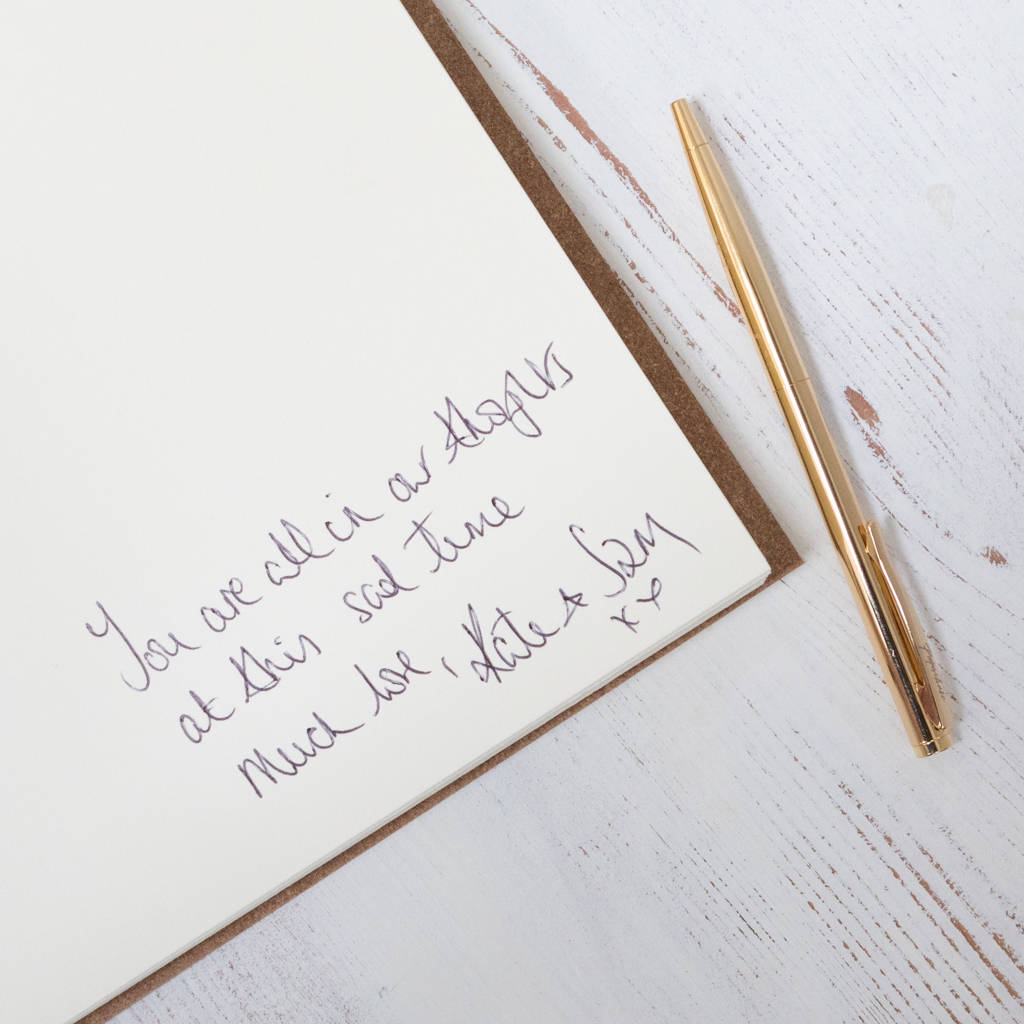 You are all in our thoughts
at this sad time
Much love, Kate & Sam
xx